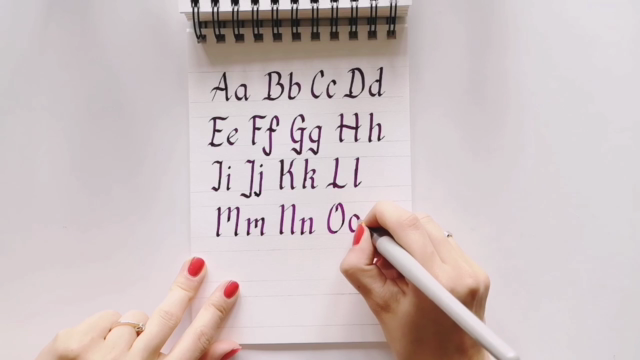 Aa Bb Cc Dd
Ee Ff Gg Hh
Ii Jj Kk Ll
Mm Nn Oo